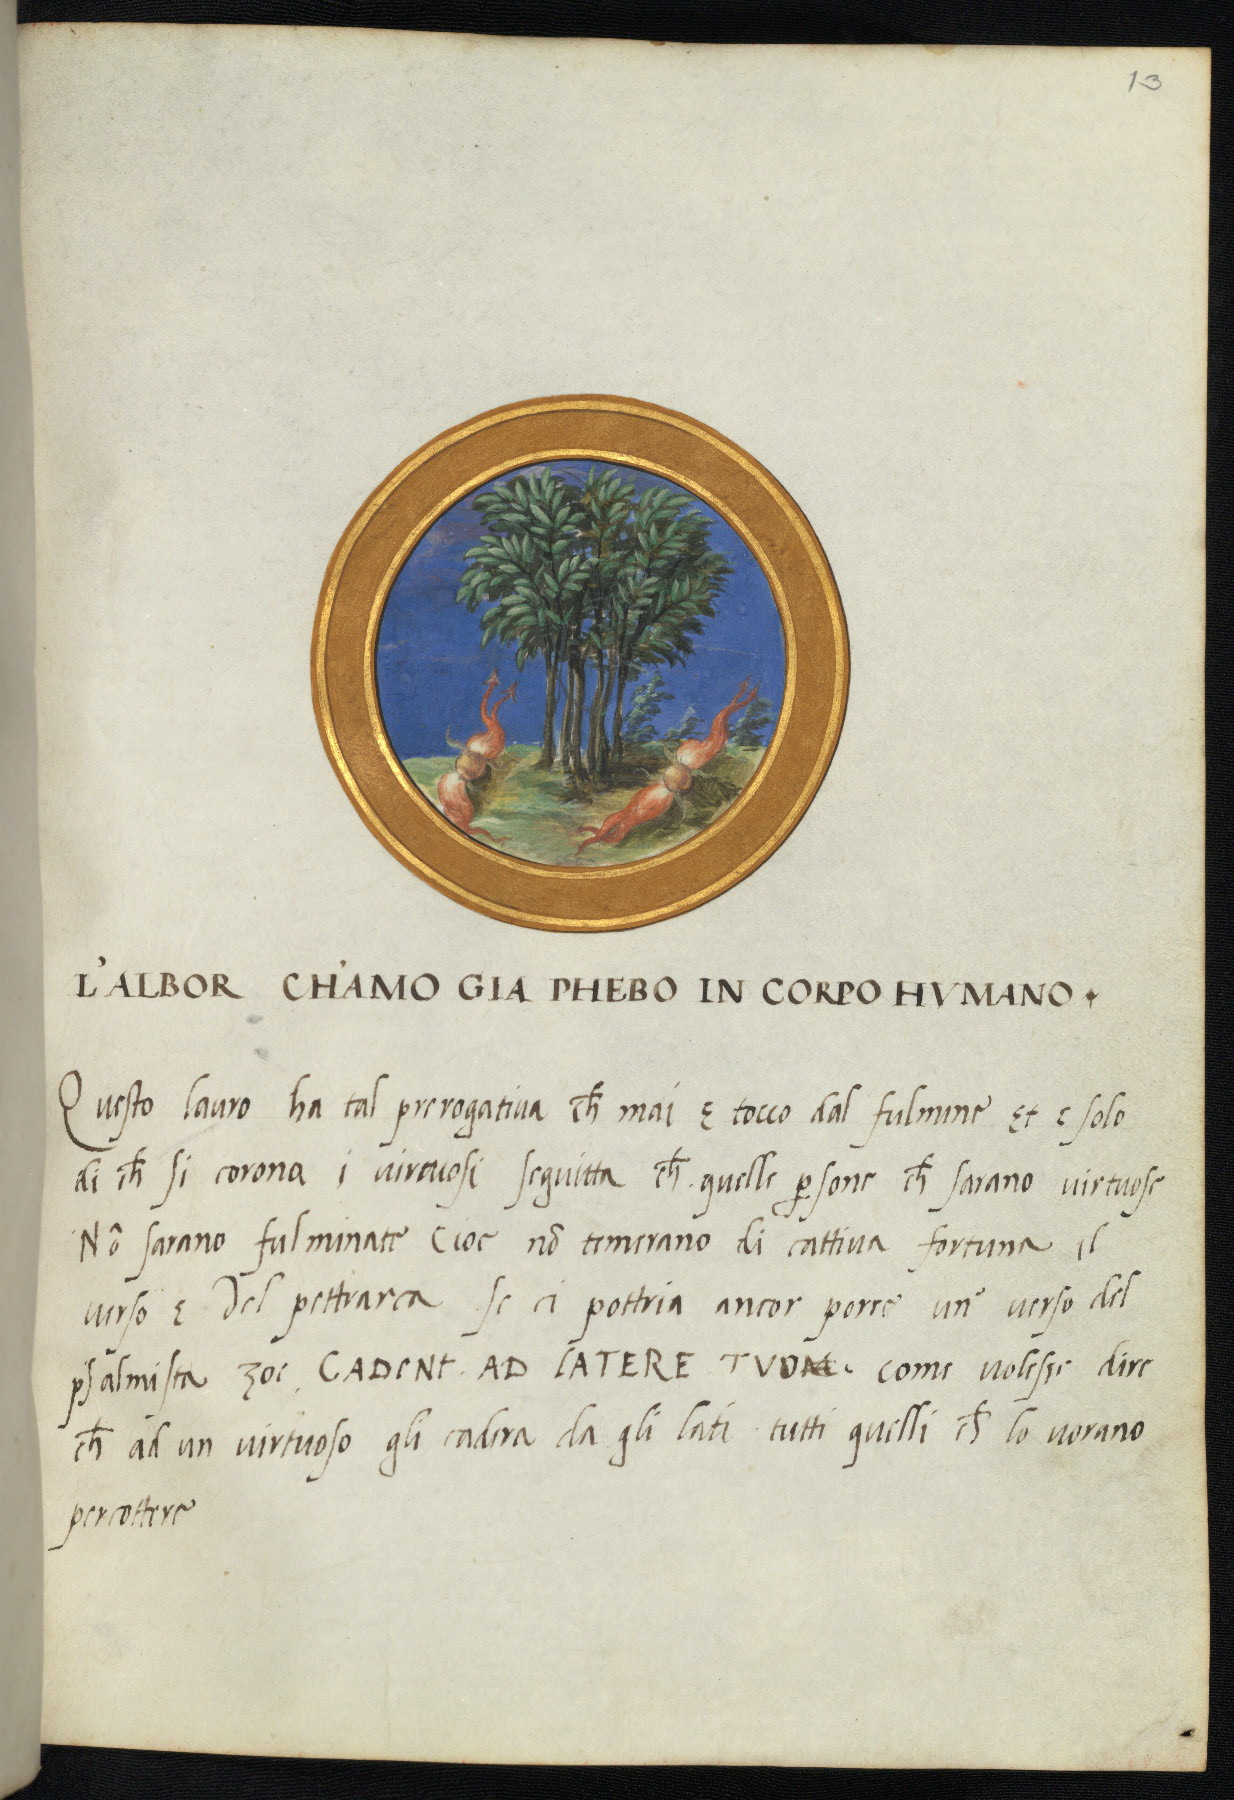 13
L'ALBOR CH'AMO GIA PHEBO IN CORPO HVMANO
Questo lauro ha tal prerogatiua ch̄ mai ę tocco dal fulmine et ę solo
di ch̄ si corona i virtuosi seguitta ch̄ quelle ꝑsone ch̄ sarano virtuose
Nō sarano fulminate Cioe nō temerano di cattiua fortuna il
verso ę Del pettrarca se ci pottria ancor porre un verso del
psalmista zoe CADENT AD LATERE TVO come volesse dire
ch̄ ad un virtuoso gli cadera da gli lati tutti quelli ch̄ lo vorano
percottere